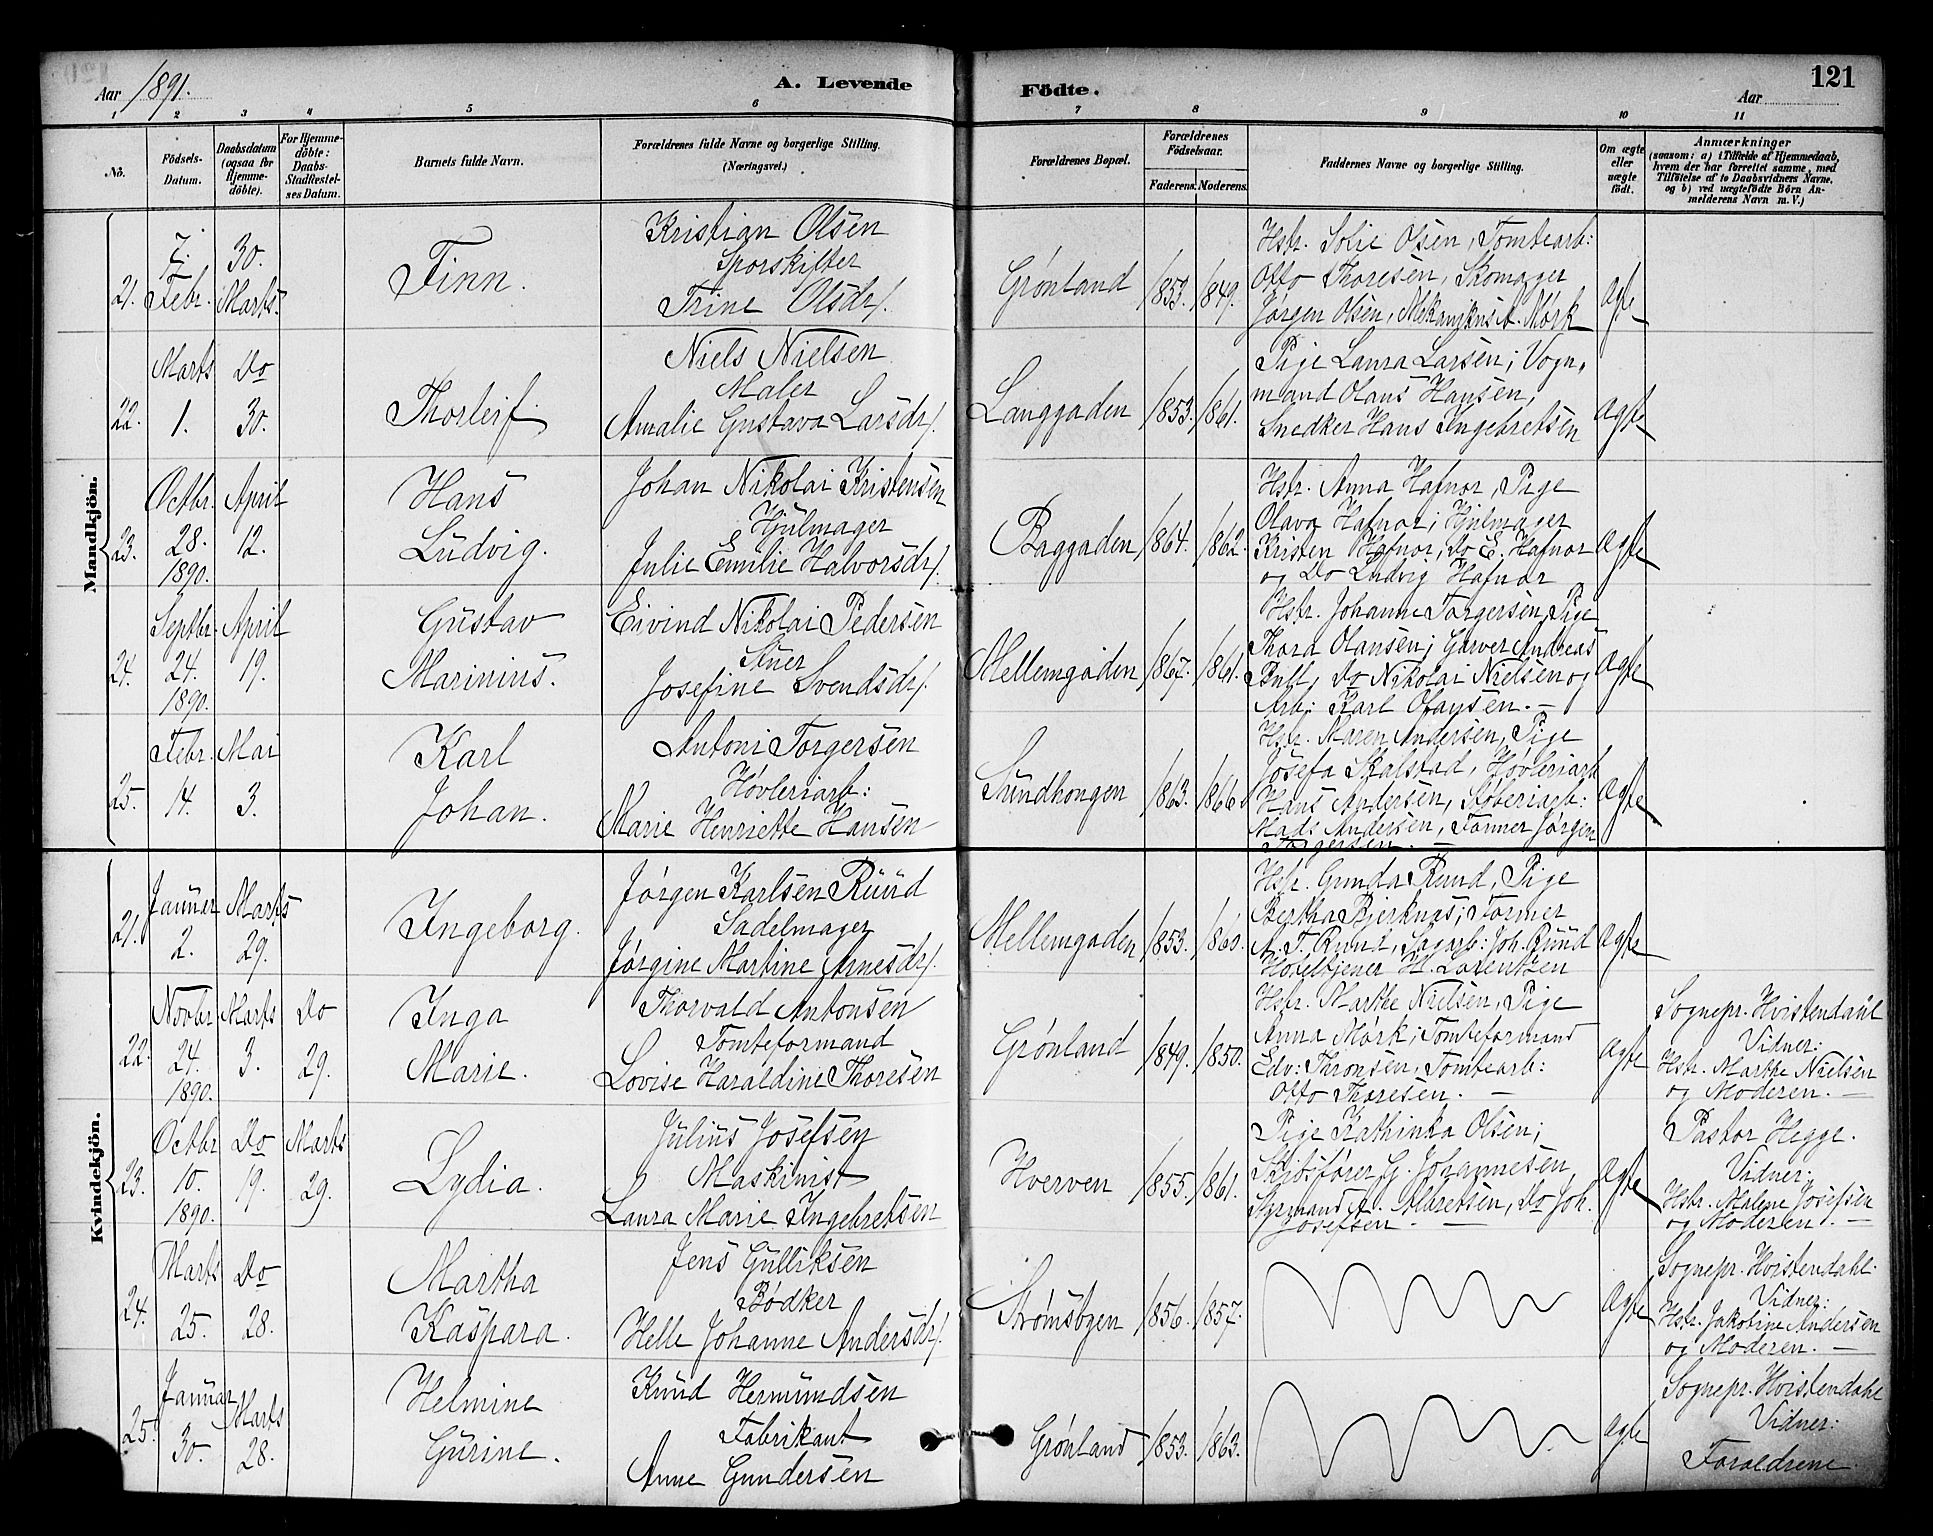 Aar 1891.
A. Levende
Födte.
121
Aar
1 2 3 4 5 6 7 8 9 10 11
No.
Födsels-Datum.
Daabsdatum (ogsaa for Hjemme-döbte).
For Hjemme-döbte: Daabs-Stadfæstel-ses Datum.
Barnets fulde Navn.
Forældrenes fulde Navne og borgerlige Stilling. (Næringsvei.)
Forældrenes Bopæl.
Forældrenes Födselsaar.
Faderens. Moderens.
Faddernes Navne og borgerlige Stilling.
Om ægte eller uægte födt.
Anmærkninger (saasom: a) i Tilfælde af Hjemmedaab, hvem der har forrettet samme, med Tilföielse af to Daabsvidners Navne, og b) ved uægtefödte Börn An-melderens Navn m. V.)
Mandkjön.
21. 7. Febr. 30. Marts.
Finn.
Kristian Olsen
Sporskifter
Trine Olsdr.
Grønland 1853. 1849.
Hstr. Solie Olsen, Tomtearb:
Otto Thoresen, Skomager
Jørgen Olsen, Mekanikus A. Mørk
Ægte
22. Marts 1. Do 30.
Thorleif.
Niels Nielsen
Maler
Amalie Gustava Larsdr.
Langgaden 1853. 1861.
Pige Laura Larsen; Vogn-
mand Olaus Hansen,
Snedker Hans Ingebretsen
Ægte
23. Octbr. 28. 1890. April 12.
Hans
Ludvig.
Johan Nikolai Kristensen
Hjulmager
Julie Emilie Halvorsdr.
Baggaden 1864. 1862.
Hstr. Anna Hafnor, Pige
Olava Hafnor; Hjulmager
Kristen Hafnor, Do E. Hafnor
og Do Ludvig Hafnor
Ægte
24. Septbr. 24. 1890. April 19.
Gustav
Marinius.
Eivind Nikolai Pedersen
Josefine Svendsdr.
Mellemgaden 1867. 1861.
Hstr. Johanne Torgersen, Pige
Thora Olausen; Garver Andreas
Bull, Do Nikolai Nielsen og
Arb: Karl Olausen. —
Ægte
25. Febr. 14. Mai 3.
Karl
Johan.
Antoni Torgersen
Høvleriarb:
Marie Henriette Hansen
Sundhougen 1863. 1866.
Hstr. Maren Andersen, Pige
Josefa Skalstad, Høvleriarb
Hans Andersen, Støberiarb:
Mads Andersen, Former Jørgen
Torgersen. —
Ægte
Kvindekjön.
21. Januar 2. Marts 29.
Ingeborg.
Jørgen Karlsen Ruud
Sadelmager
Jørgine Martine Arnesdr.
Mellemgaden 1853. 1860.
Hstr. Gunda Ruud, Pige
Bertha Bjerknæs; Former
A. T. Ruud, Sagarb: Joh. Ruud
Hoteltjener H. Lorentzen
Ægte
22. Novbr 24. 1890. Marts 3. Do 29.
Inga
Marie.
Thorvald Antonsen
Tomteformand
Lovise Haraldine Thoresen
Grønland 1849. 1850.
Hstr. Marthe Nielsen, Pige
Anna Mørk; Tomteformand
Edv: Thronsen, Tomtearb:
Otto Thoresen. —
Ægte
Sognepr. Hvistendahl
Vidner:
Hstr. Marthe Nielsen
og Moderen. —
23. Octbr 10. 1890. Do 19. Marts 29.
Lydia.
Julius Josefsen
Maskinist
Laura Marie Ingebretsen
Hverven 1855. 1861.
Pige Kathinka Olsen;
Skibsfører G. Johannesen,
Styrmand A. Albretsen, Do Joh.
Josefsen. —
Ægte
Pastor Hegge.
Vidner:
Hstr. Malene Josefsen
og Moderen. —
24. Marts 25. Do 28.
Martha
Kaspara.
Jens Gulliksen
Bødker
Helle Johanne Andersdr.
Strømsbgen 1856. 1857.
Ægte
Sognepr. Hvistendahl.
Vidner:
Hstr. Jakobine Andersen
og Moderen. —
25. Januar 30. Marts 28.
Helmine
Gurine.
Knud Hermundsen
Fabrikant
Anne Gundersen
Grønland 1853. 1863.
Ægte
Sognepr. Hvistendahl
Vidner:
Forældrene.